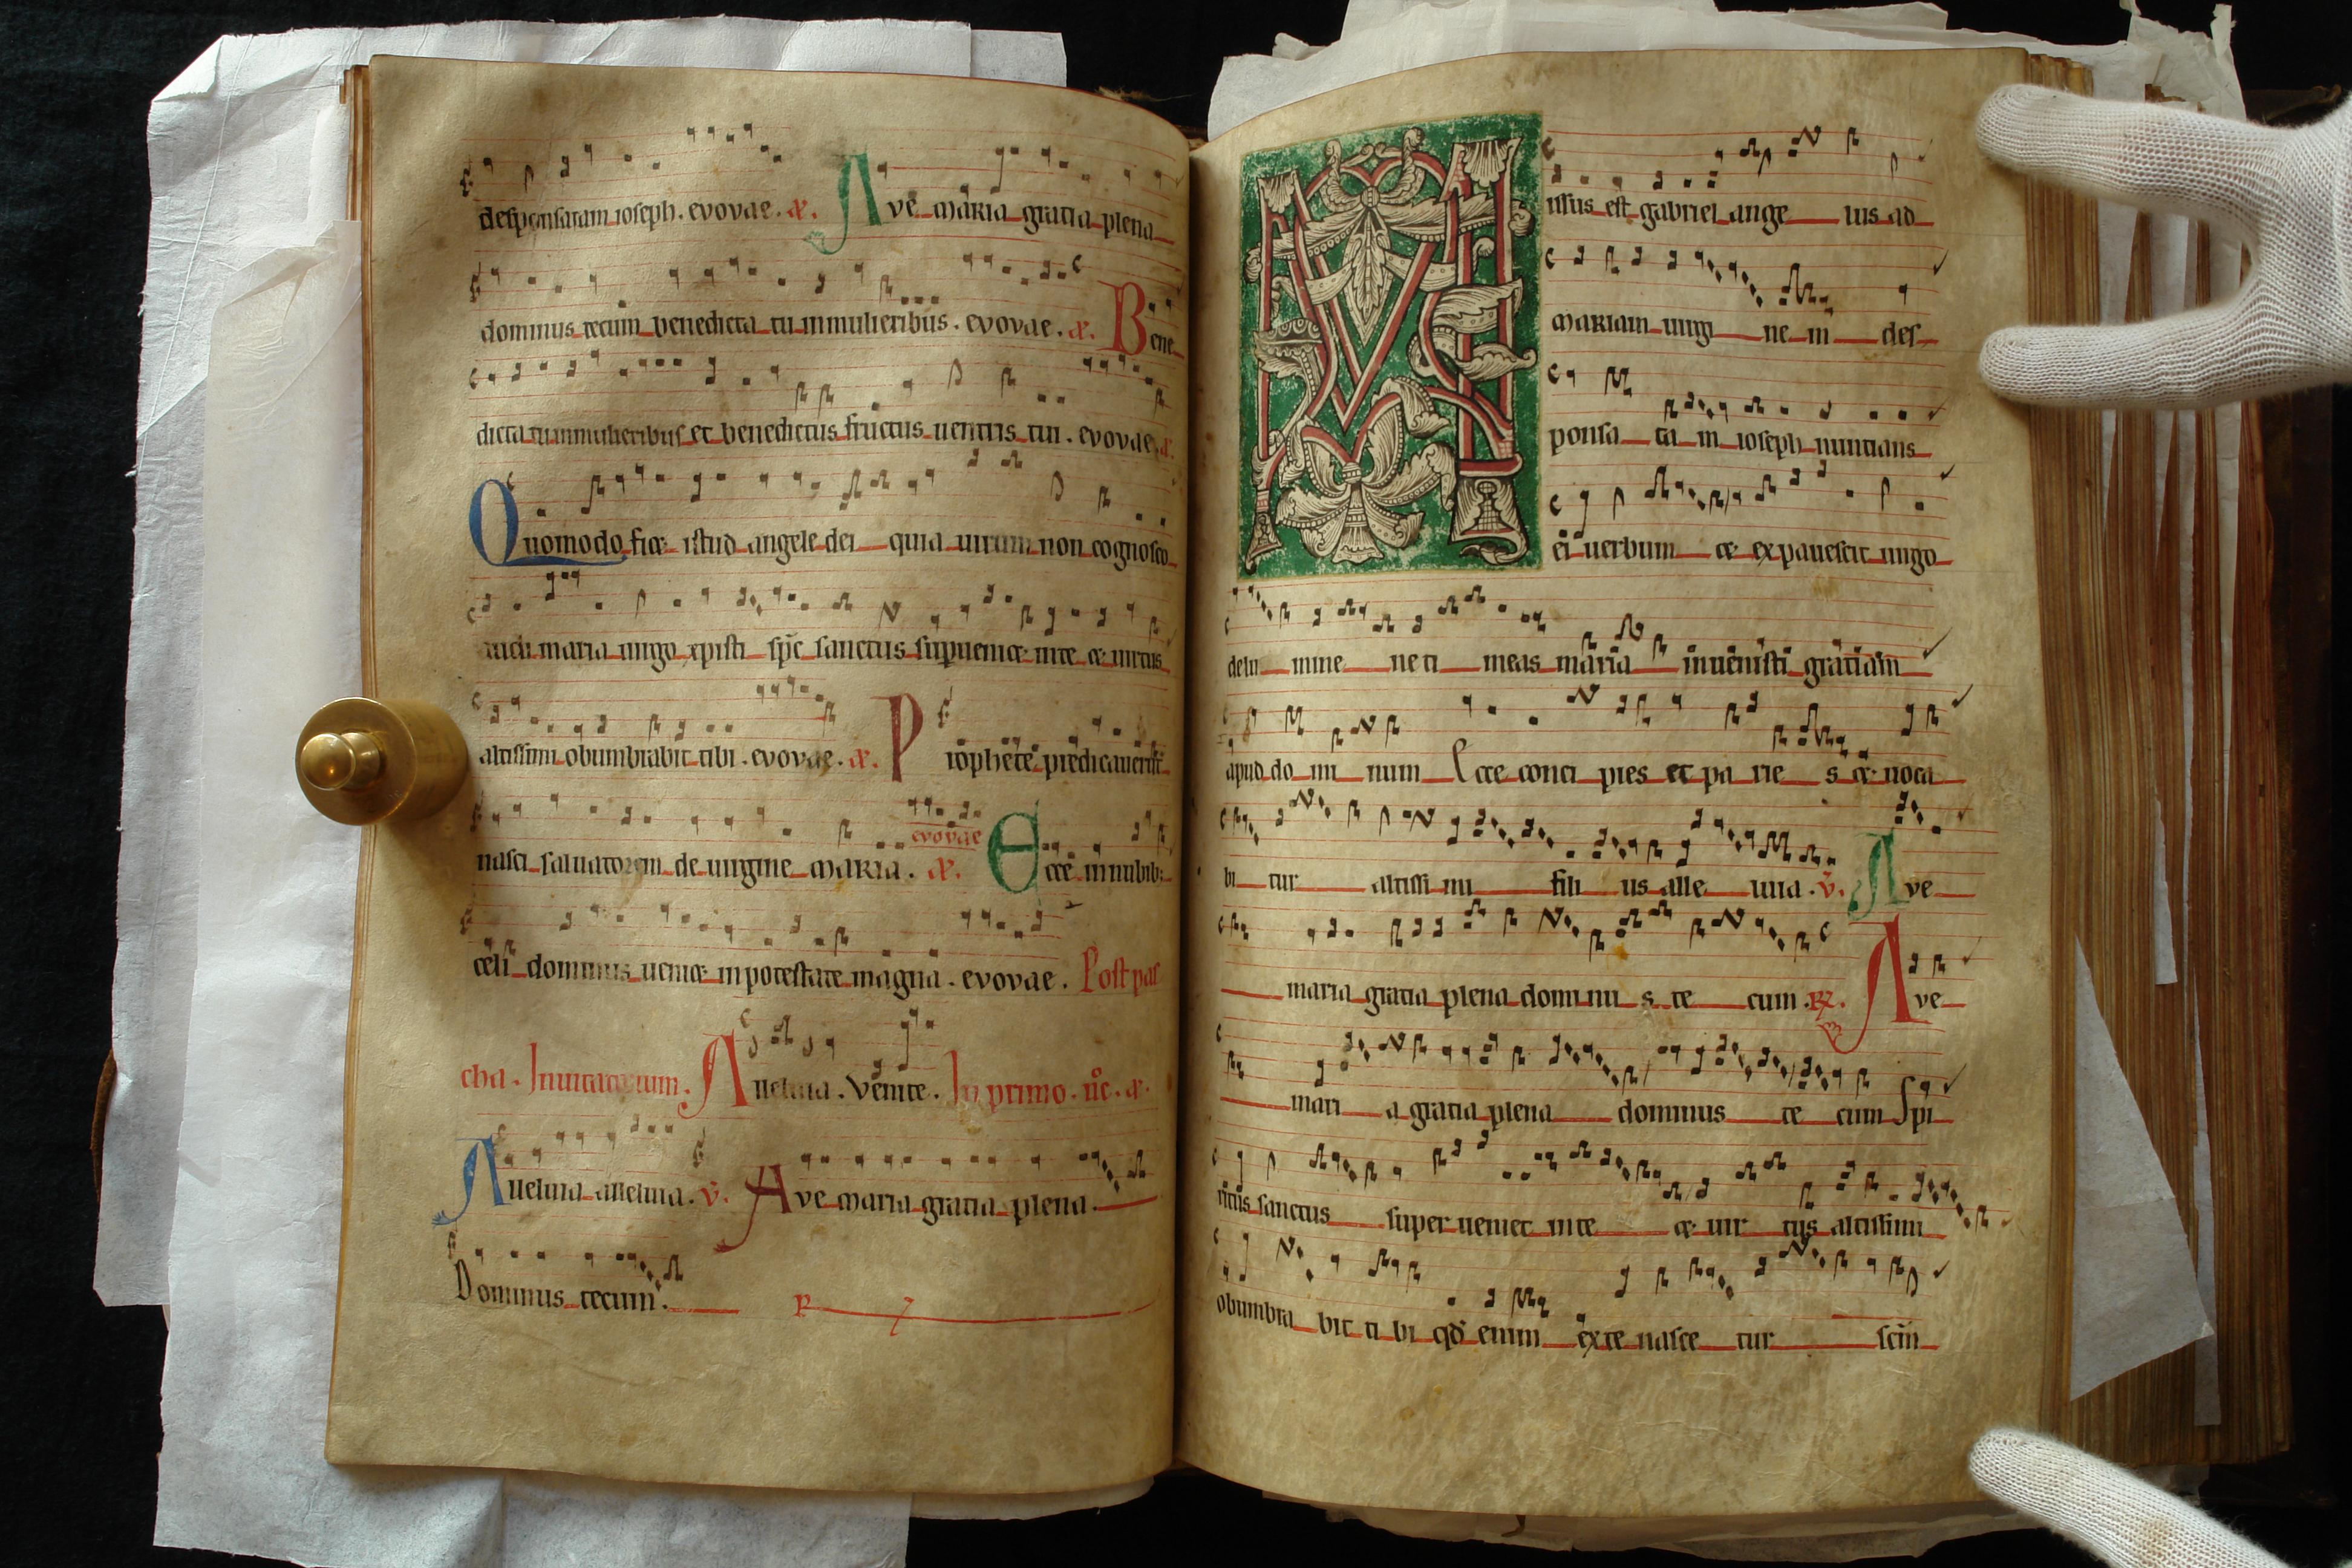 desponsatam ioseph. evovae. a. Ave maria gratia plena
dominus tecum benedicta tu inmulieribus. evovae. a. Bene
dicta tu inmulieribus et benedictus fructus uentris tui. evovae a.
Quomodo fiet istud angele dei quia uirum non cognosco
audi maria uirgo xpisti sp̄c sanctus supueniet inte et uirtus
altissimi obumbrabit tibi. evovae. a. Prophete predicauerūt
nasci saluatorem de uirgine maria. evovae a. Ecce in nubib;
celi dominus ueniet inpotestate magna. evovae. Post pas
cha. Inuitatorium. Aueluia. Venite. In primo. nc̄. a.
Aueluia alleluia. v̄. Ave maria gratia plena.
Dominus tecum. R
Missus est gabriel ange lus ad
mariam uirgi ne m des
ponsa ta m ioseph nuntians
ei uerbum et expauescit uirgo
delu mine ne ti meas maria inuenisti gratiam
apud do mi num Ecce conci pies et pa rie s et uoca
bi tur altissi mi fili us alle uiia. v̄. Ave
maria gratia plena dominu s te cum. R. Ave
mari a gratia plena dominus te cum Spi
ritus sanctus super ueniet inte et uir tus altissimi
obumbra bit ti bi qd̄ enim exte nasce tur scm̄